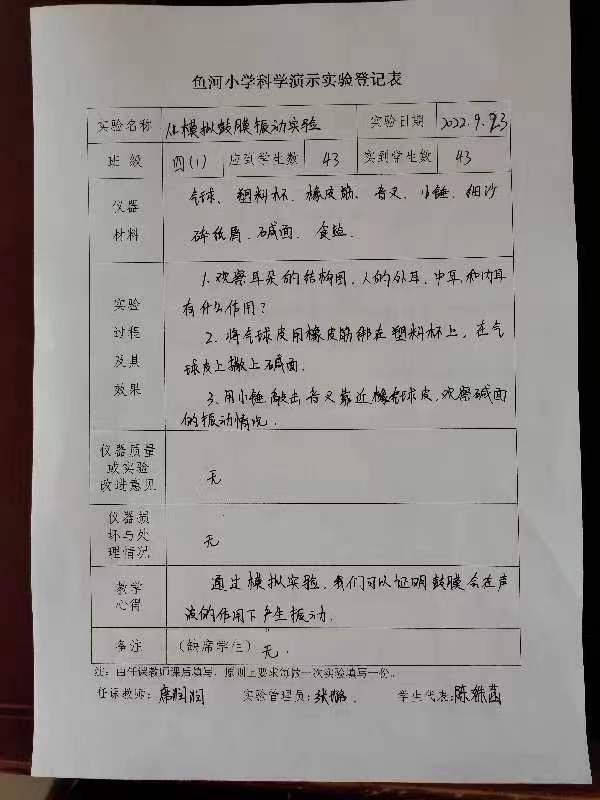 鱼河小学科学演示实验登记表
实验名称 从模拟鼓膜振动实验 实验日期 2022.9.23
班 级 四(1) 应到学生数 43 实到学生数 43
仪器 气球、塑料杯、橡皮筋、音叉、小锤、细沙
材料 碎纸屑、碱面、食盐.
1.观察耳朵的结构图,人的外耳、中耳和内耳
实验 有什么作用?
过程 2.将气球皮用橡皮筋绑在塑料杯上,在气
及其 球皮上撒上碱面.
效果 3.用小锤敲击音叉靠近球皮,观察碱面
的振动情况.
仪器质量
或实验
改进意见 无
仪器损
坏与处
理情况 无
教学 通过模拟实验,我们可以证明鼓膜会在声
心得 波的作用下产生振动.
备注 (缺席学生) 无.
注:由任课教师课后填写,原则上要求每做一次实验填写一份。
任课教师: 润润 实验管理员:张 学生代表:陈